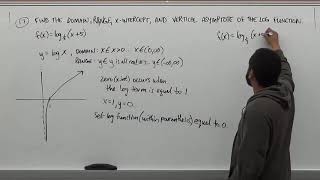 (17) FIND THE DOMAIN, RANGE, X-INTERCEPT, AND VERTICAL ASYMPTOTE OF THE LOG FUNCTION.
f(x) = log₃(x+5)
y = log x, DOMAIN: x ∈ x>0 x ∈ (0,∞)
RANGE: y ∈ y is all real #s. y ∈ (-∞,∞)
zero (x-int) occurs when
the log term is equal to 1
x=1, y=0.
set log function (within parenthesis) equal to 0.
f(x) = log₃(x+5)